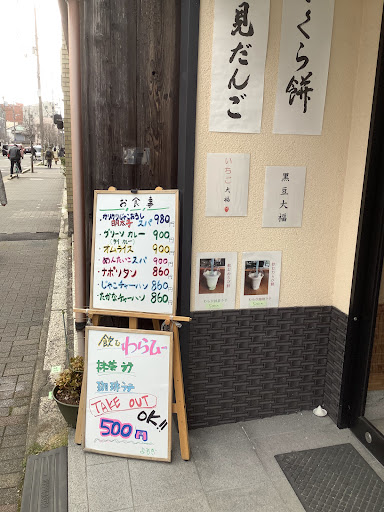 見だんご
くら餅
いちご大福
黒豆大福
お食事
980
・グリーンカレー 900
(タイカレー)
・オムライス 900
・めんたいこスパ 900
・ナポリタン 860
・じゃこチャーハン 860
・たかなチャーハン 860
飲むわらびー
抹茶
珈琲
TAKE OUT
OK!!
500円